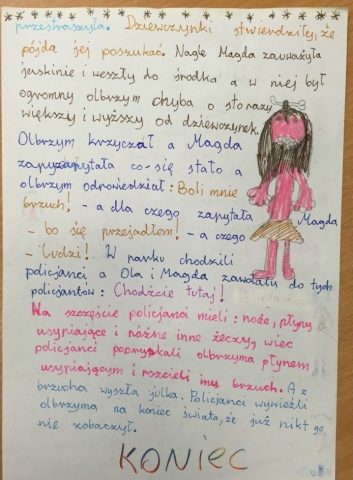 przestraszyła. Dziewczynki stwierdziły, że
pójdą jej poszukać. Nagle Magda zauważyła
jaskinie i weszły do środka a w niej był
ogromny olbrzym chyba o sto razy
większy i wyższy od dziewczynek.
Olbrzym krzyczał a Magda
zapytała co się stało a
olbrzym odpowiedział: Boli mnie
brzuch! - a dla czego zapytała Magda
- bo się przejadłem! - a czego
- ludzi! W parku chodzili
policjanci a Ola i Magda zawołały do tych
policjantów: Chodźcie tutaj!
Na szczęście policjanci mieli: noże, płyny
usypiające i różne inne żeczy, więc
policjanci popryskali olbrzyma płynem
usypiającym i rozcieli mu brzuch. A z
brzucha wyszła julka. Policjanci wywieźli
olbrzyma na koniec świata, że już nikt go
nie zobaczył.
KONIEC